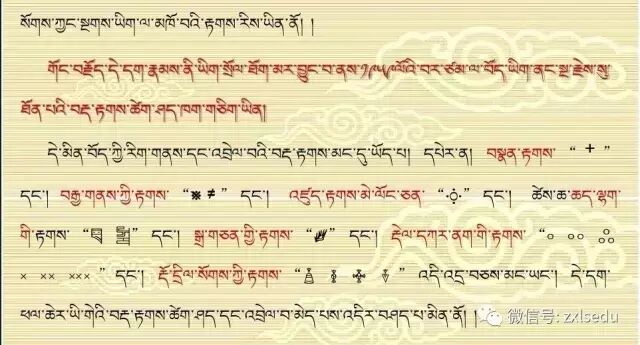 སོགས་ཀྱང་སྔགས་ཡིག་ལ་མཁོ་བའི་རྟགས་རིས་ཡིན་ནོ། །
གོང་བརྗོད་དེ་དག་རྣམས་ནི་ཡིག་སྲོལ་ཐོག་མར་བྱུང་བ་ནས་༡༩༥༩ལོའི་བར་ཙམ་ལ་བོད་ཡིག་ནང་སྔ་རྗེས་སུ་
ཐོན་པའི་བརྡ་རྟགས་ཚེག་ཤད་ཁག་གཅིག་ཡིན།
དེ་མིན་བོད་ཀྱི་རིག་གནས་དང་འབྲེལ་བའི་བརྡ་རྟགས་མང་དུ་ཡོད་པ། དཔེར་ན། བསྣན་རྟགས་“ + ”
དང་། བརྒྱ་གནས་ཀྱི་རྟགས་“ ※ ≠ ” དང་། འཛུད་རྟགས་མེ་ལོང་ཅན་“ ” དང་། ཚེས་ཆ་ཆད་ལྷག་
གི་རྟགས་“ ” དང་། སྒྲ་གཅན་གྱི་རྟགས་“ ” དང་། རྡེལ་དཀར་ནག་གི་རྟགས་“ ༚ ༛ ༜
× ×× ××× ” དང་། རྡོ་དྲིལ་སོགས་ཀྱི་རྟགས་“ ” འདི་འདྲ་བཅས་མང་ཡང་། དེ་དག་
ཕལ་ཆེར་ཡི་གེའི་བརྡ་རྟགས་ཚེག་ཤད་དང་འབྲེལ་བ་མེད་པས་འདིར་བཤད་པ་མིན་ནོ། །
微信号: zxlsedu